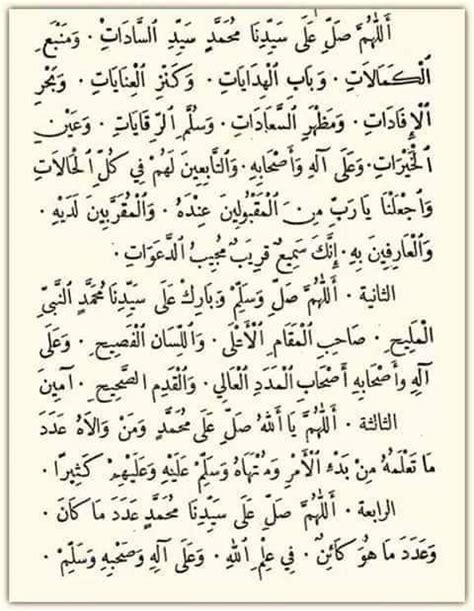 أَللّٰهُمَّ صَلِّ عَلَى سَيِّدِنَا مُحَمَّدٍ سَيِّدِ السَّادَاتِ . وَمَنْبَعِ
الْكَمَالَاتِ . وَبَابِ الْهِدَايَاتِ . وَكَنْزِ الْعِنَايَاتِ . وَبَحْرِ
الْإِفَادَاتِ . وَمَظْهَرِ السَّعَادَاتِ . وَسُلَّمِ الرِّقَايَاتِ . وَعَيْنِ
الْخَيْرَاتِ . وَعَلَى آلِهِ وَأَصْحَابِهِ . وَالتَّابِعِينَ لَهُمْ فِي كُلِّ الْحَالَاتِ
وَاجْعَلْنَا يَا رَبِّ مِنَ الْمَقْبُولِينَ عِنْدَهُ . وَالْمُقَرَّبِينَ لَدَيْهِ .
وَالْعَارِفِينَ بِهِ . إِنَّكَ سَمِيعٌ قَرِيبٌ مُجِيبُ الدَّعَوَاتِ .
الثانية . أَللّٰهُمَّ صَلِّ وَسَلِّمْ وَبَارِكْ عَلَى سَيِّدِنَا مُحَمَّدٍ النَّبِيِّ
الْمَلِيحِ . صَاحِبِ الْمَقَامِ الْأَعْلَى . وَاللِّسَانِ الْفَصِيحِ . وَعَلَى
آلِهِ وَأَصْحَابِهِ أَصْحَابِ الْمَدَدِ الْعَالِي . وَالْقَدَمِ الصَّحِيحِ . آمِينَ
الثالثة . أَللّٰهُمَّ يَا أَللهُ صَلِّ عَلَى مُحَمَّدٍ وَمَنْ وَالَاهُ عَدَدَ
مَا تَعْلَمُهُ مِنْ بَدْءِ الْأَمْرِ وَمُنْتَهَاهُ وَسَلِّمْ عَلَيْهِ وَعَلَيْهِمْ كَثِيرًا .
الرابعة . أَللّٰهُمَّ صَلِّ عَلَى سَيِّدِنَا مُحَمَّدٍ عَدَدَ مَا كَانَ .
وَعَدَدَ مَا هُوَ كَائِنٌ . فِي عِلْمِ اللهِ . وَعَلَى آلِهِ وَصَحْبِهِ وَسَلِّمْ .